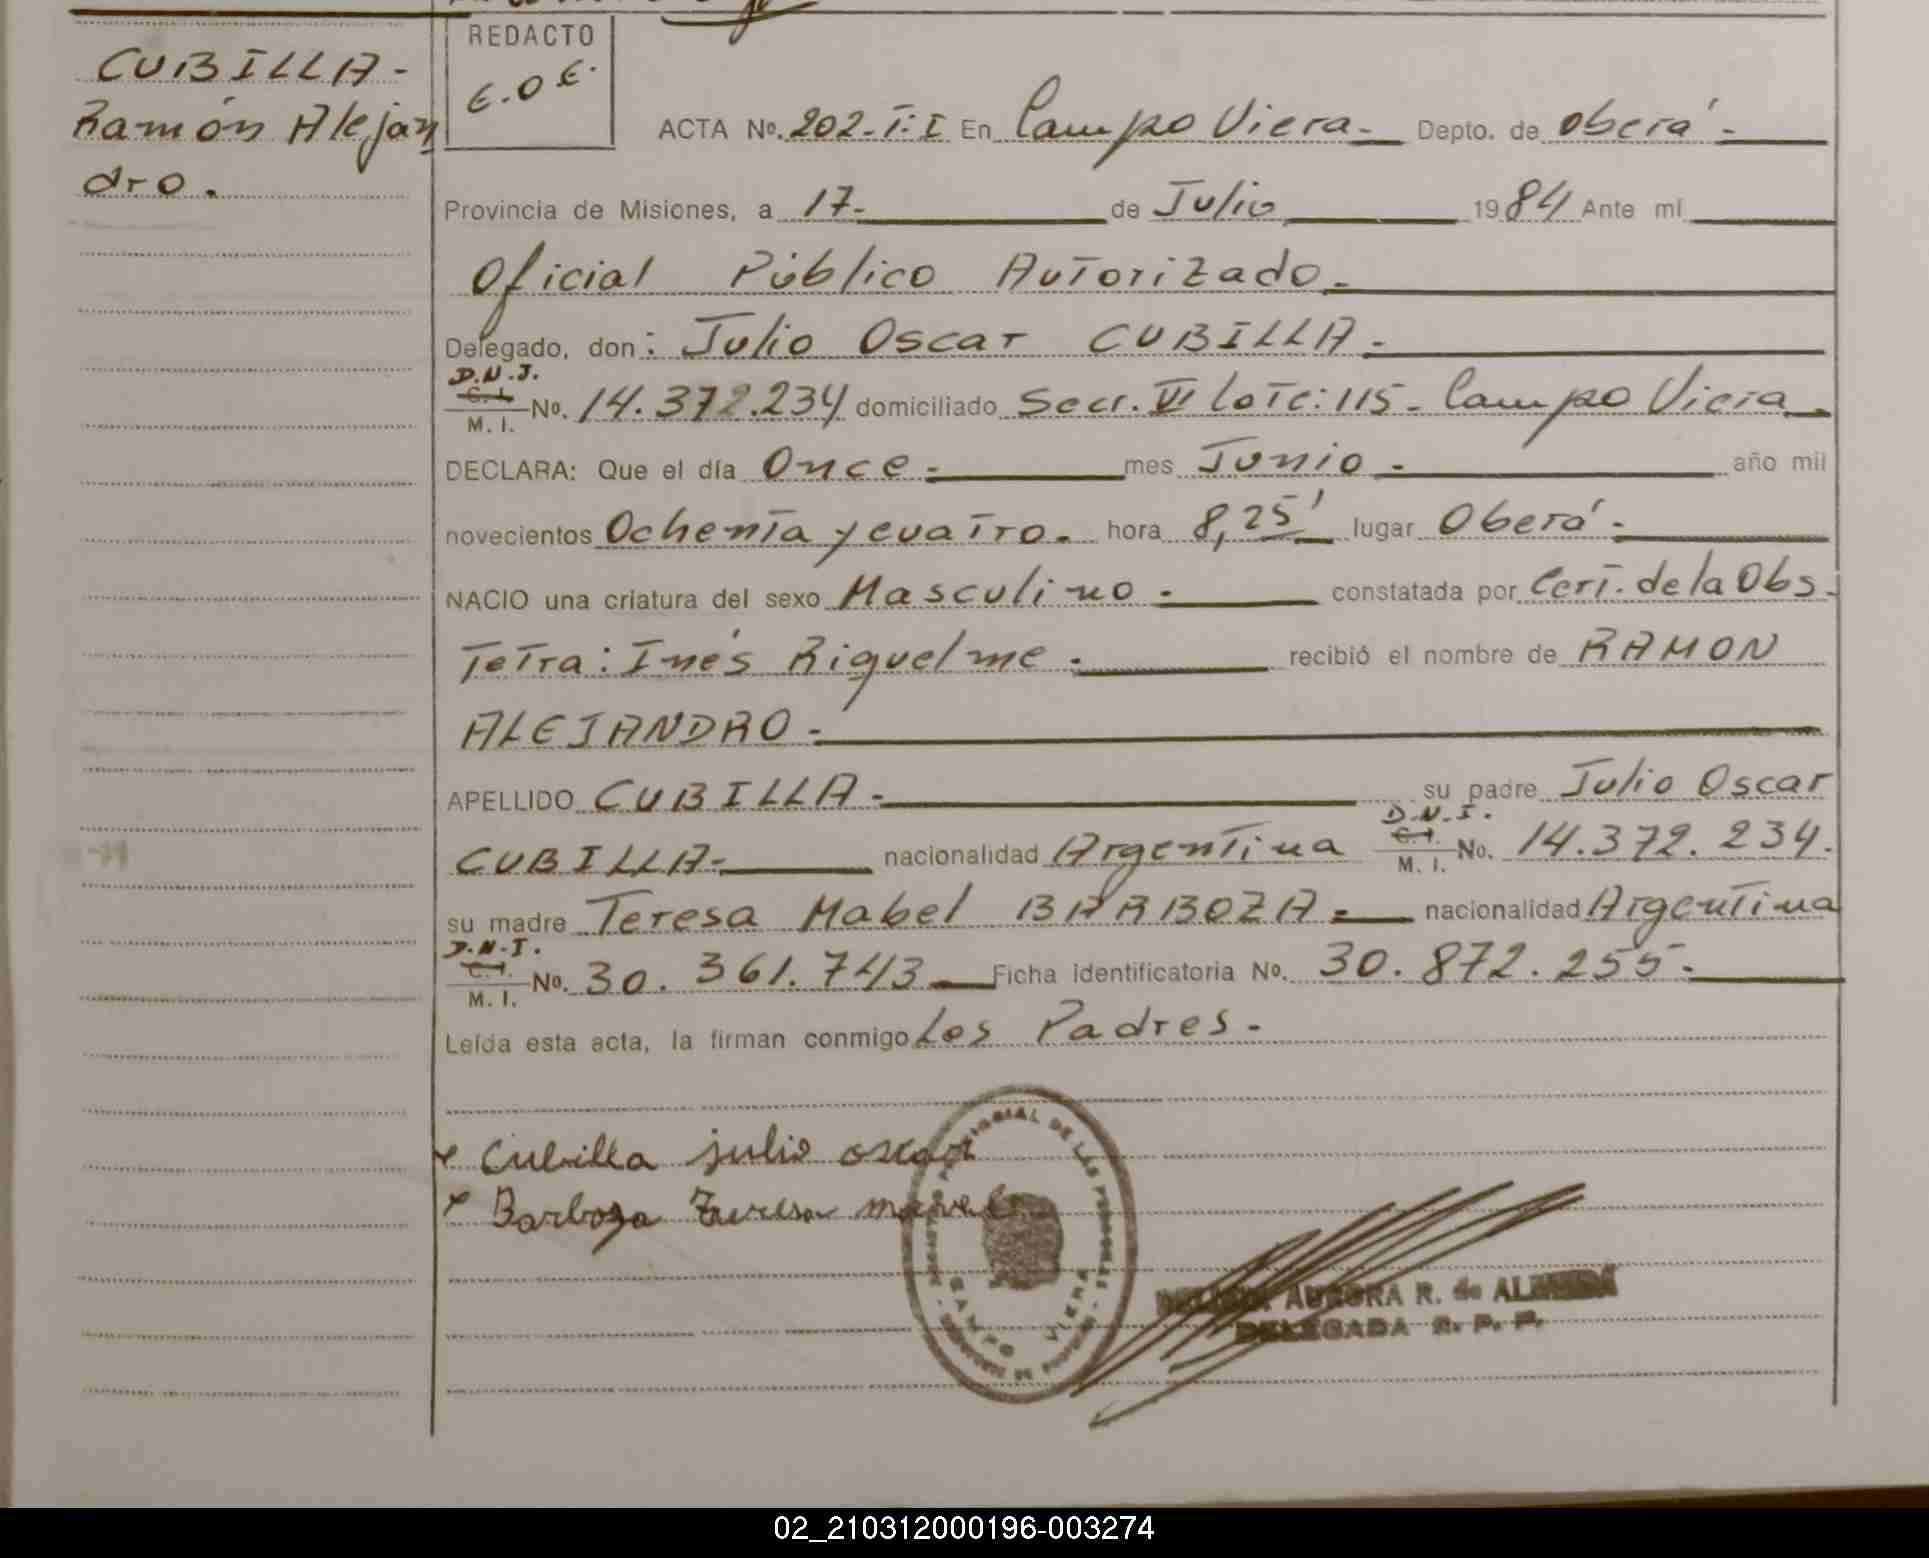 CUBILLA-
Ramón Alejan
dro.
REDACTO
E.O.E.
ACTA No. 202-T:I En Campo Viera.- Depto. de Oberá.-
Provincia de Misiones, a 17.- de Julio 1984 Ante mí
Oficial Público Autorizado.-
Delegado, don: Julio Oscar CUBILLA.-
D.N.I.
C.I.
M. I. No. 14.372.234 domiciliado Secc. VI Lote: 115- Campo Viera.
DECLARA: Que el día Once.- mes Junio.- año mil
novecientos Ochenta y cuatro.- hora 8,25' lugar Oberá.-
NACIO una criatura del sexo Masculino.- constatada por Cert. de la Obs-
Tetra: Inés Riquelme.- recibió el nombre de RAMON
ALEJANDRO.-
APELLIDO CUBILLA.- su padre Julio Oscar
CUBILLA- nacionalidad Argentina D.N.I. C.I. M. I. No. 14.372.234.
su madre Teresa Mabel BARBOZA.- nacionalidad Argentina
D.N.I.
C.I.
M. I. No. 30.361.743 Ficha identificatoria No. 30.872.255.-
Leída esta acta, la firman conmigo Los Padres.-
Cubilla julio oscar
Barboza Teresa mavel
PROVINCIAL DE LAS PERSONAS
CAMPO VIERA
AURORA R. de
DELEGADA R. P. P.
02_210312000196-003274